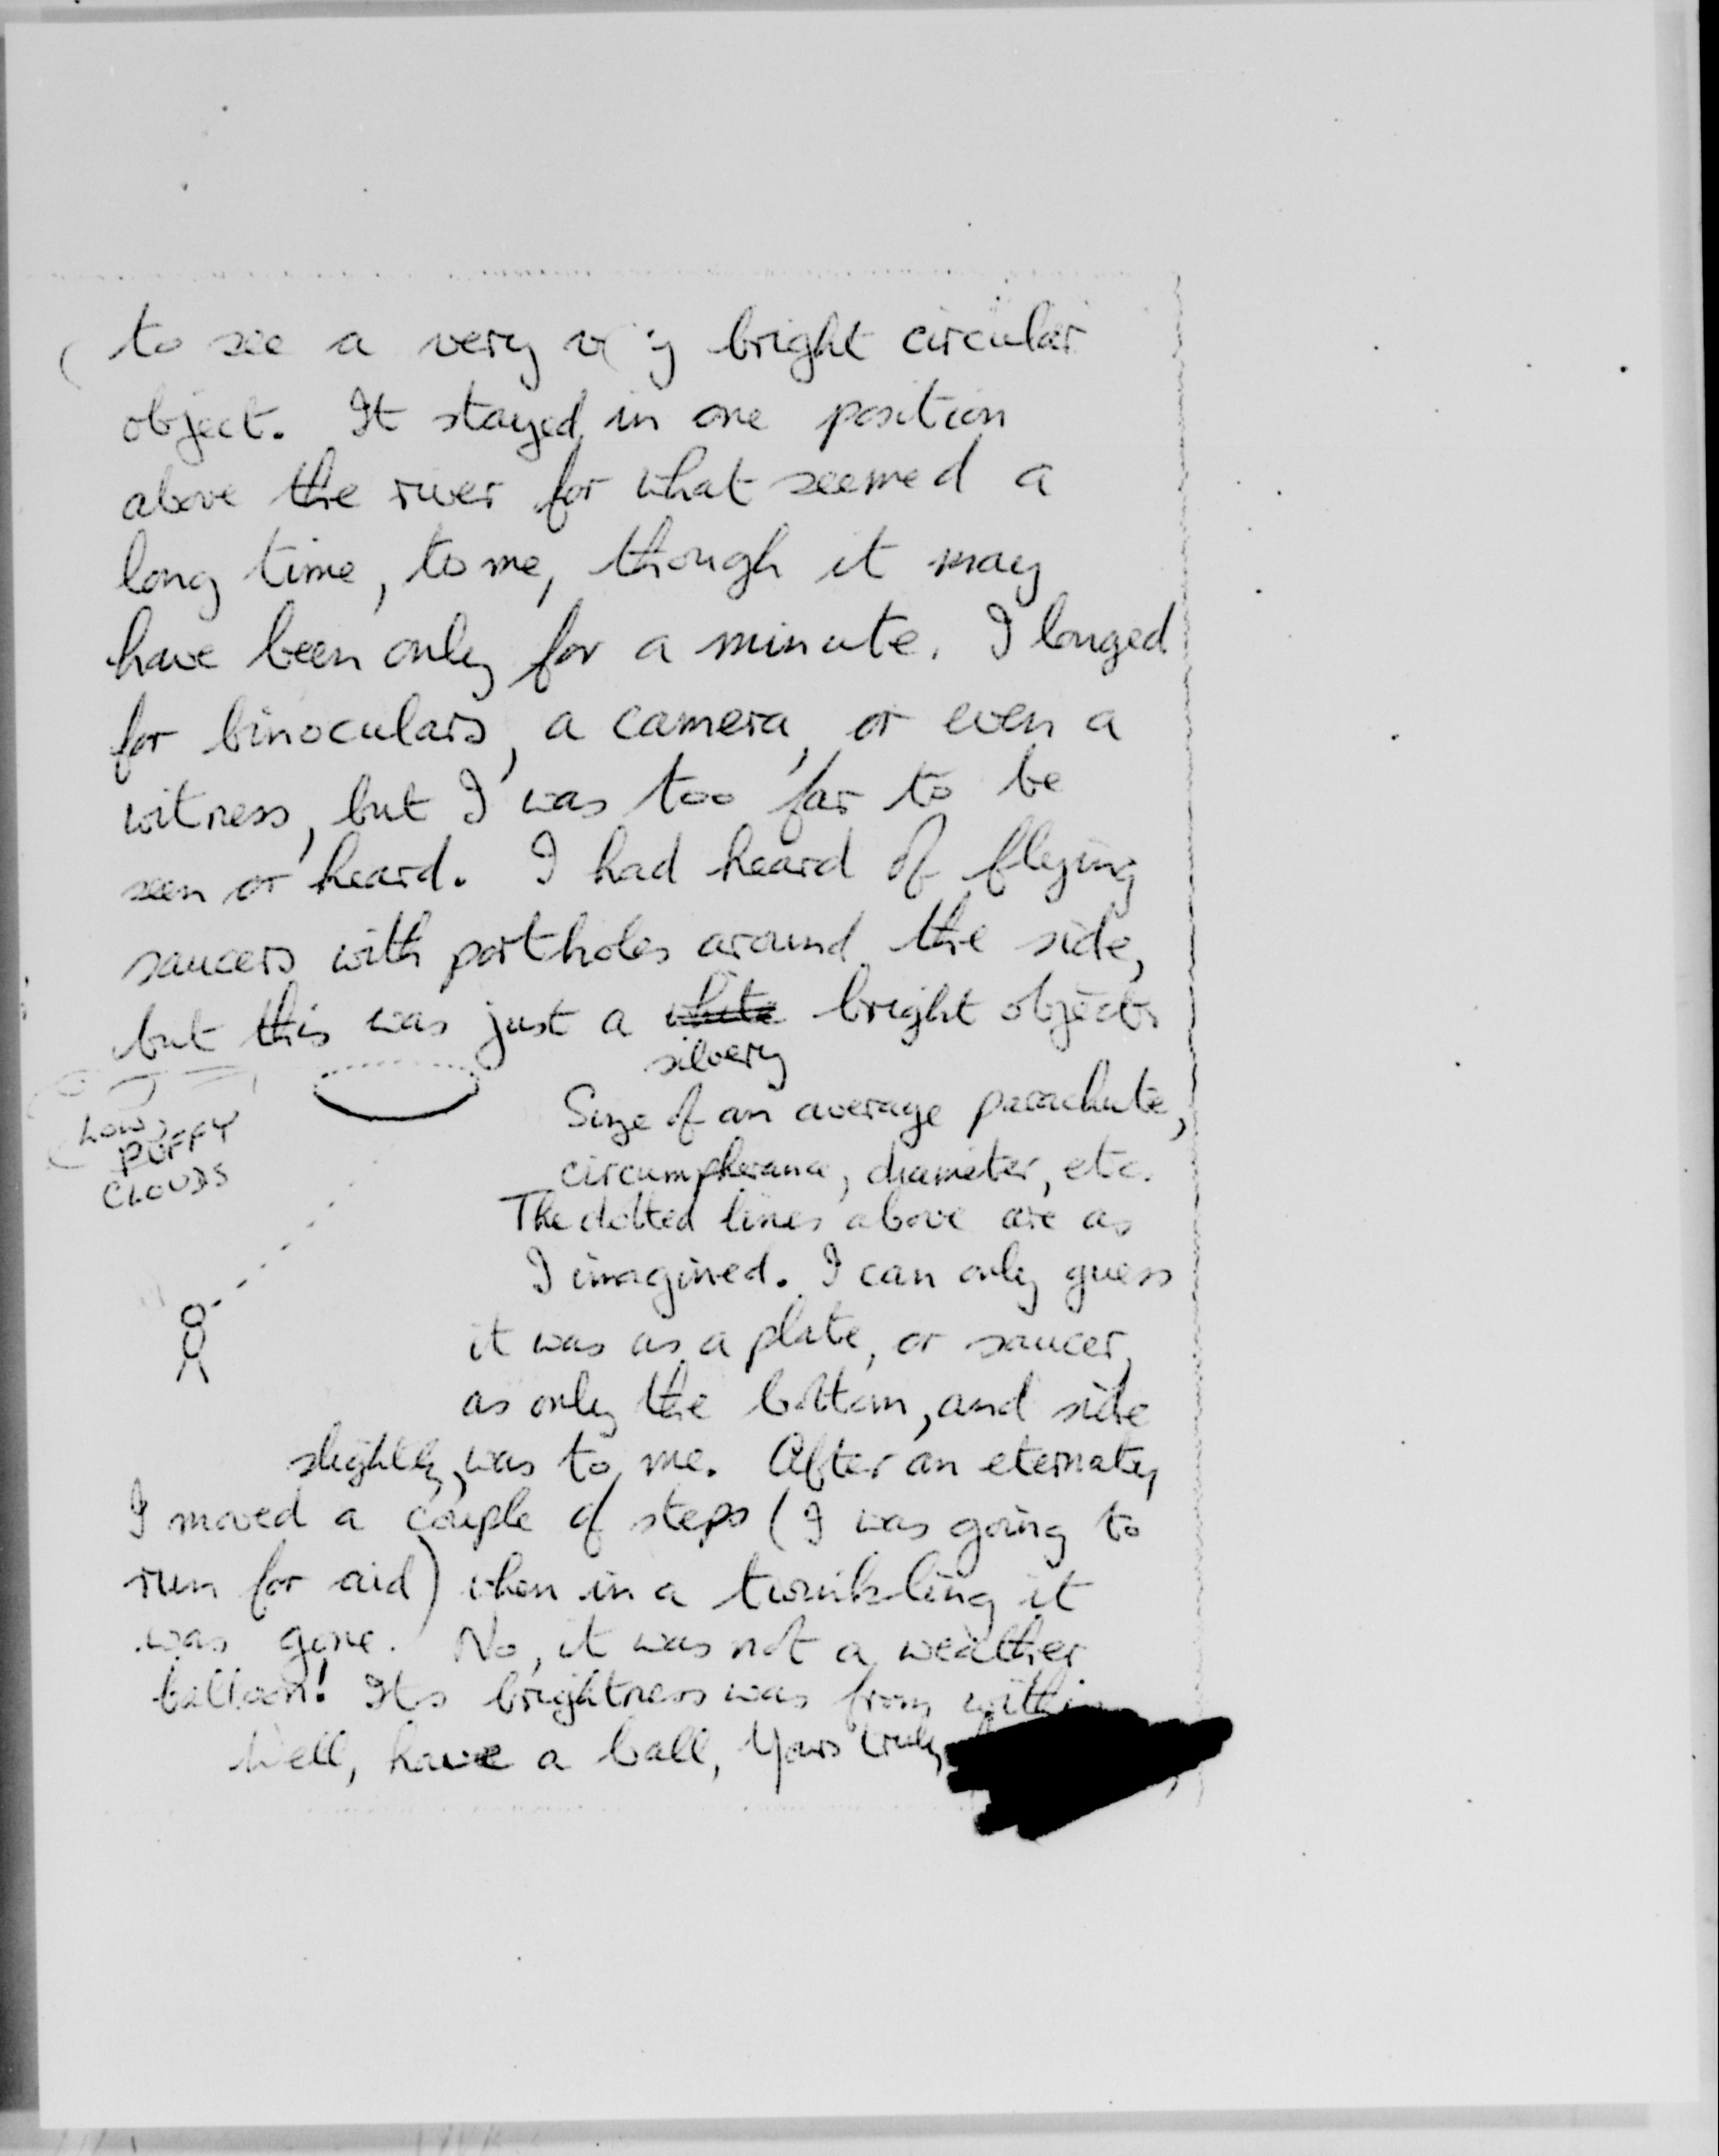 to see a very very bright circular
object. It stayed in one position
above the river for what seemed a
long time, to me, though it may
have been only for a minute. I longed
for binoculars, a camera, or even a
witness, but I was too far to be
seen or heard. I had heard of flying
saucers with portholes around the side,
but this was just a white bright object
silvery
LOW,
PUFFY
CLOUDS
Size of an average parachute,
circumpherance, diameter, etc.
The dotted lines above are as
I imagined. I can only guess
it was as a plate, or saucer,
as only the bottom, and side
slightly, was to me. After an eternaty
I moved a couple of steps (I was going to
run for aid) when in a twinkling it
was gone. No, it was not a weather
balloon! Its brightness was from within
Well, have a ball, Yours truly,